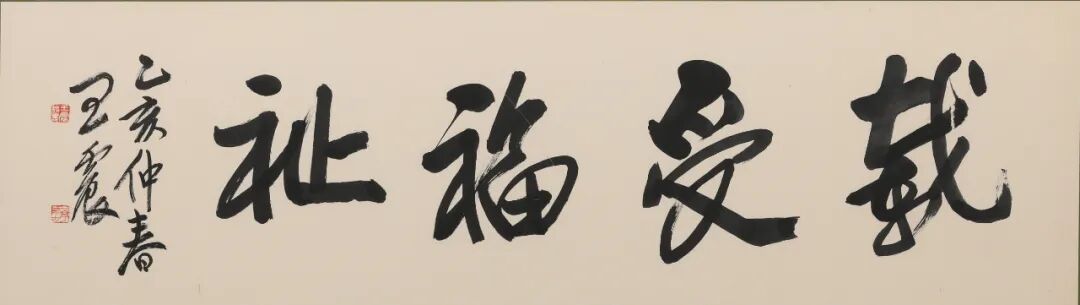 載受福祉
乙亥仲春
王震